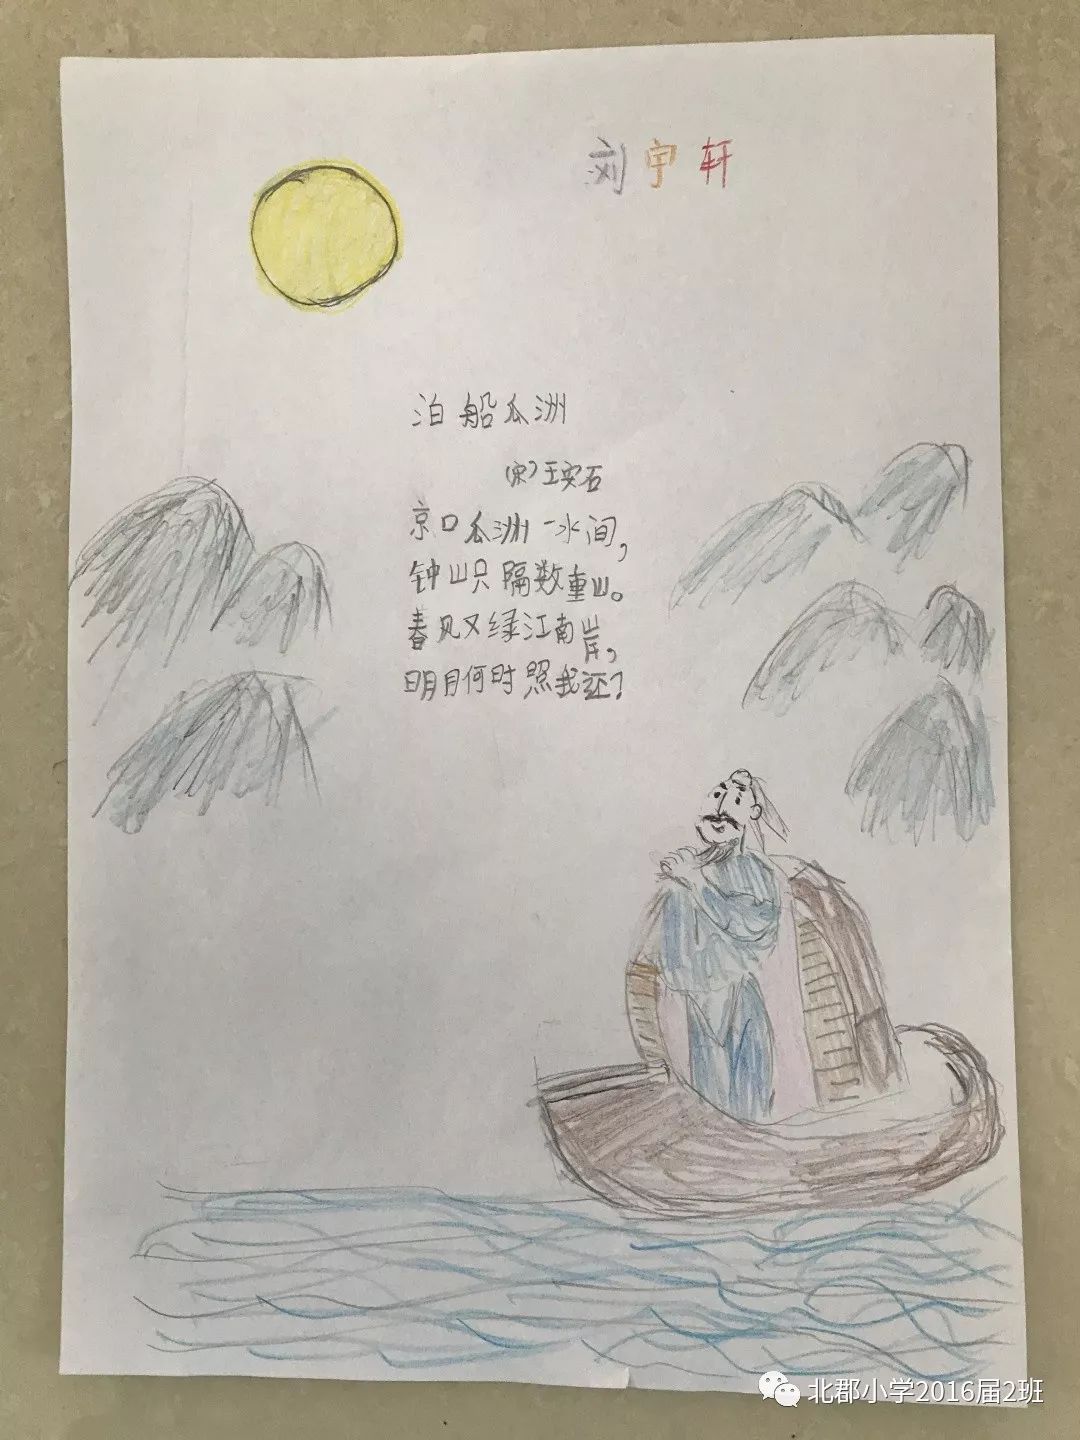 刘宇轩
泊船瓜洲
(宋)王安石
京口瓜洲一水间,
钟山只隔数重山。
春风又绿江南岸,
明月何时照我还?
北郡小学2016届2班